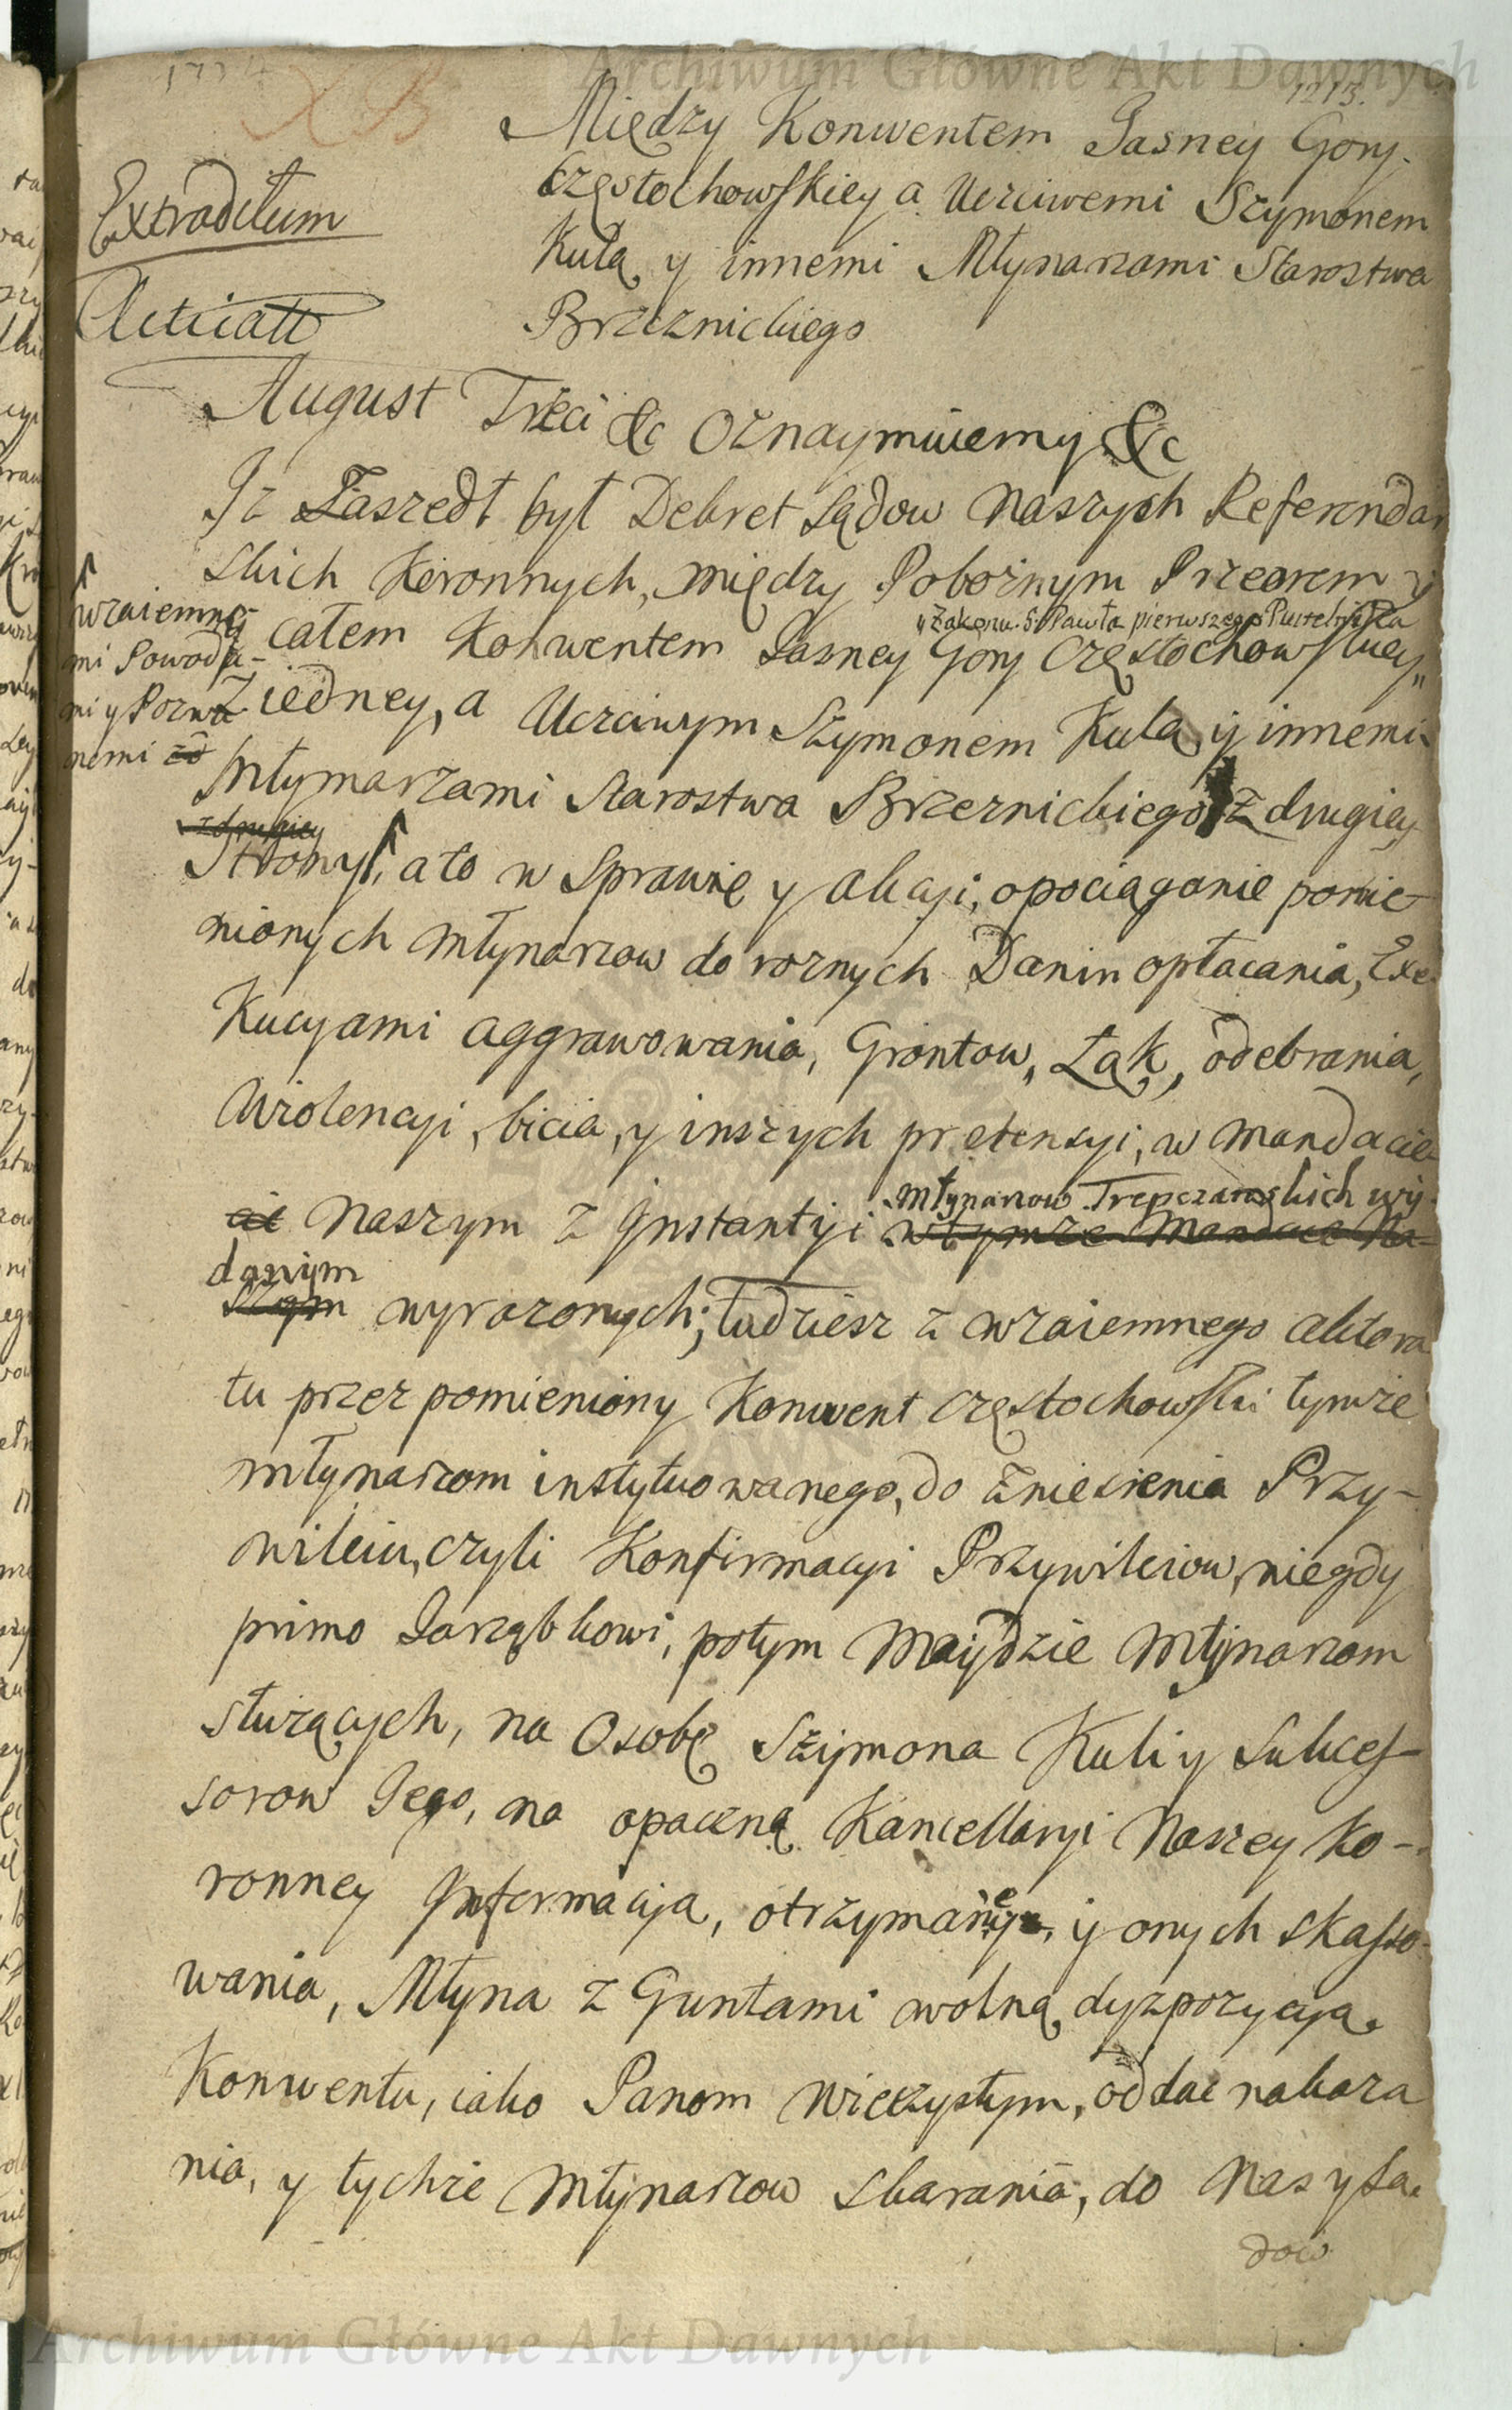 1774
X B
1213.
Między Konwentem Jasney Gory
Częstochowskiey a Uczciwemi Szymonem
Kulą y innemi Młynarzami Starostwa
Brzeznickiego
Extraditum
Acticatt
August Trzeci &c Oznaymuiemy &c
Iż Zaszedł był Dekret Sądow Naszych Referendar
skich Koronnych, między Pobożnym Przeorem y
całem Konwentem Jasney Gory Częstochowskiey
"Zakonu S. Pawła pierwszego Pustelnika
z iedney, a Uczciwym Szymonem Kulą y innemi
wzaiemne-
mi Powoda-
mi y Pozwa
nemi
Młynarzami Starostwa Brzeznickiego z drugiey
z drugiey
Strony, a to w Sprawie y akcyi, o pociąganie pomie-
nionych Młynarzow do roznych Danin opłacania, Exe-
kucyami aggrawowania, Grontow, Łąk, odebrania,
Wiolencyi, bicia, y inszych pretensyi, w Mandacie
młynarzow Trepczarskich wy-
cie Naszym z Jnstantyi w tymże Mandacie Na-
danym
szym wyrazonych; tudziesz z wzaiemnego aktora
tu przez pomieniony Konwent Częstochowski tymże
młynarzom instytuowanego, do zniesienia Przy-
wileiu, czyli Konfirmacyi Przywileiow, niegdy
primo Jarząbkowi, potym Maydzie Młynarzom
służących, na Osobę Szymona Kuli y Sukces-
sorow Jego, na opaczną Kancellaryi Naszey Ko-
ronney Jnformacyą, otrzymane, y onych skasso-
wania, Młyna z Guntami wolną dyzpozycyą
Konwentu, iako Panom Wieczystym, oddać nakaza
nia, y tychże Młynarzow skarania, do Nas y Są-
dow
Archiwum Główne Akt Dawnych
Archiwum Główne Akt Dawnych